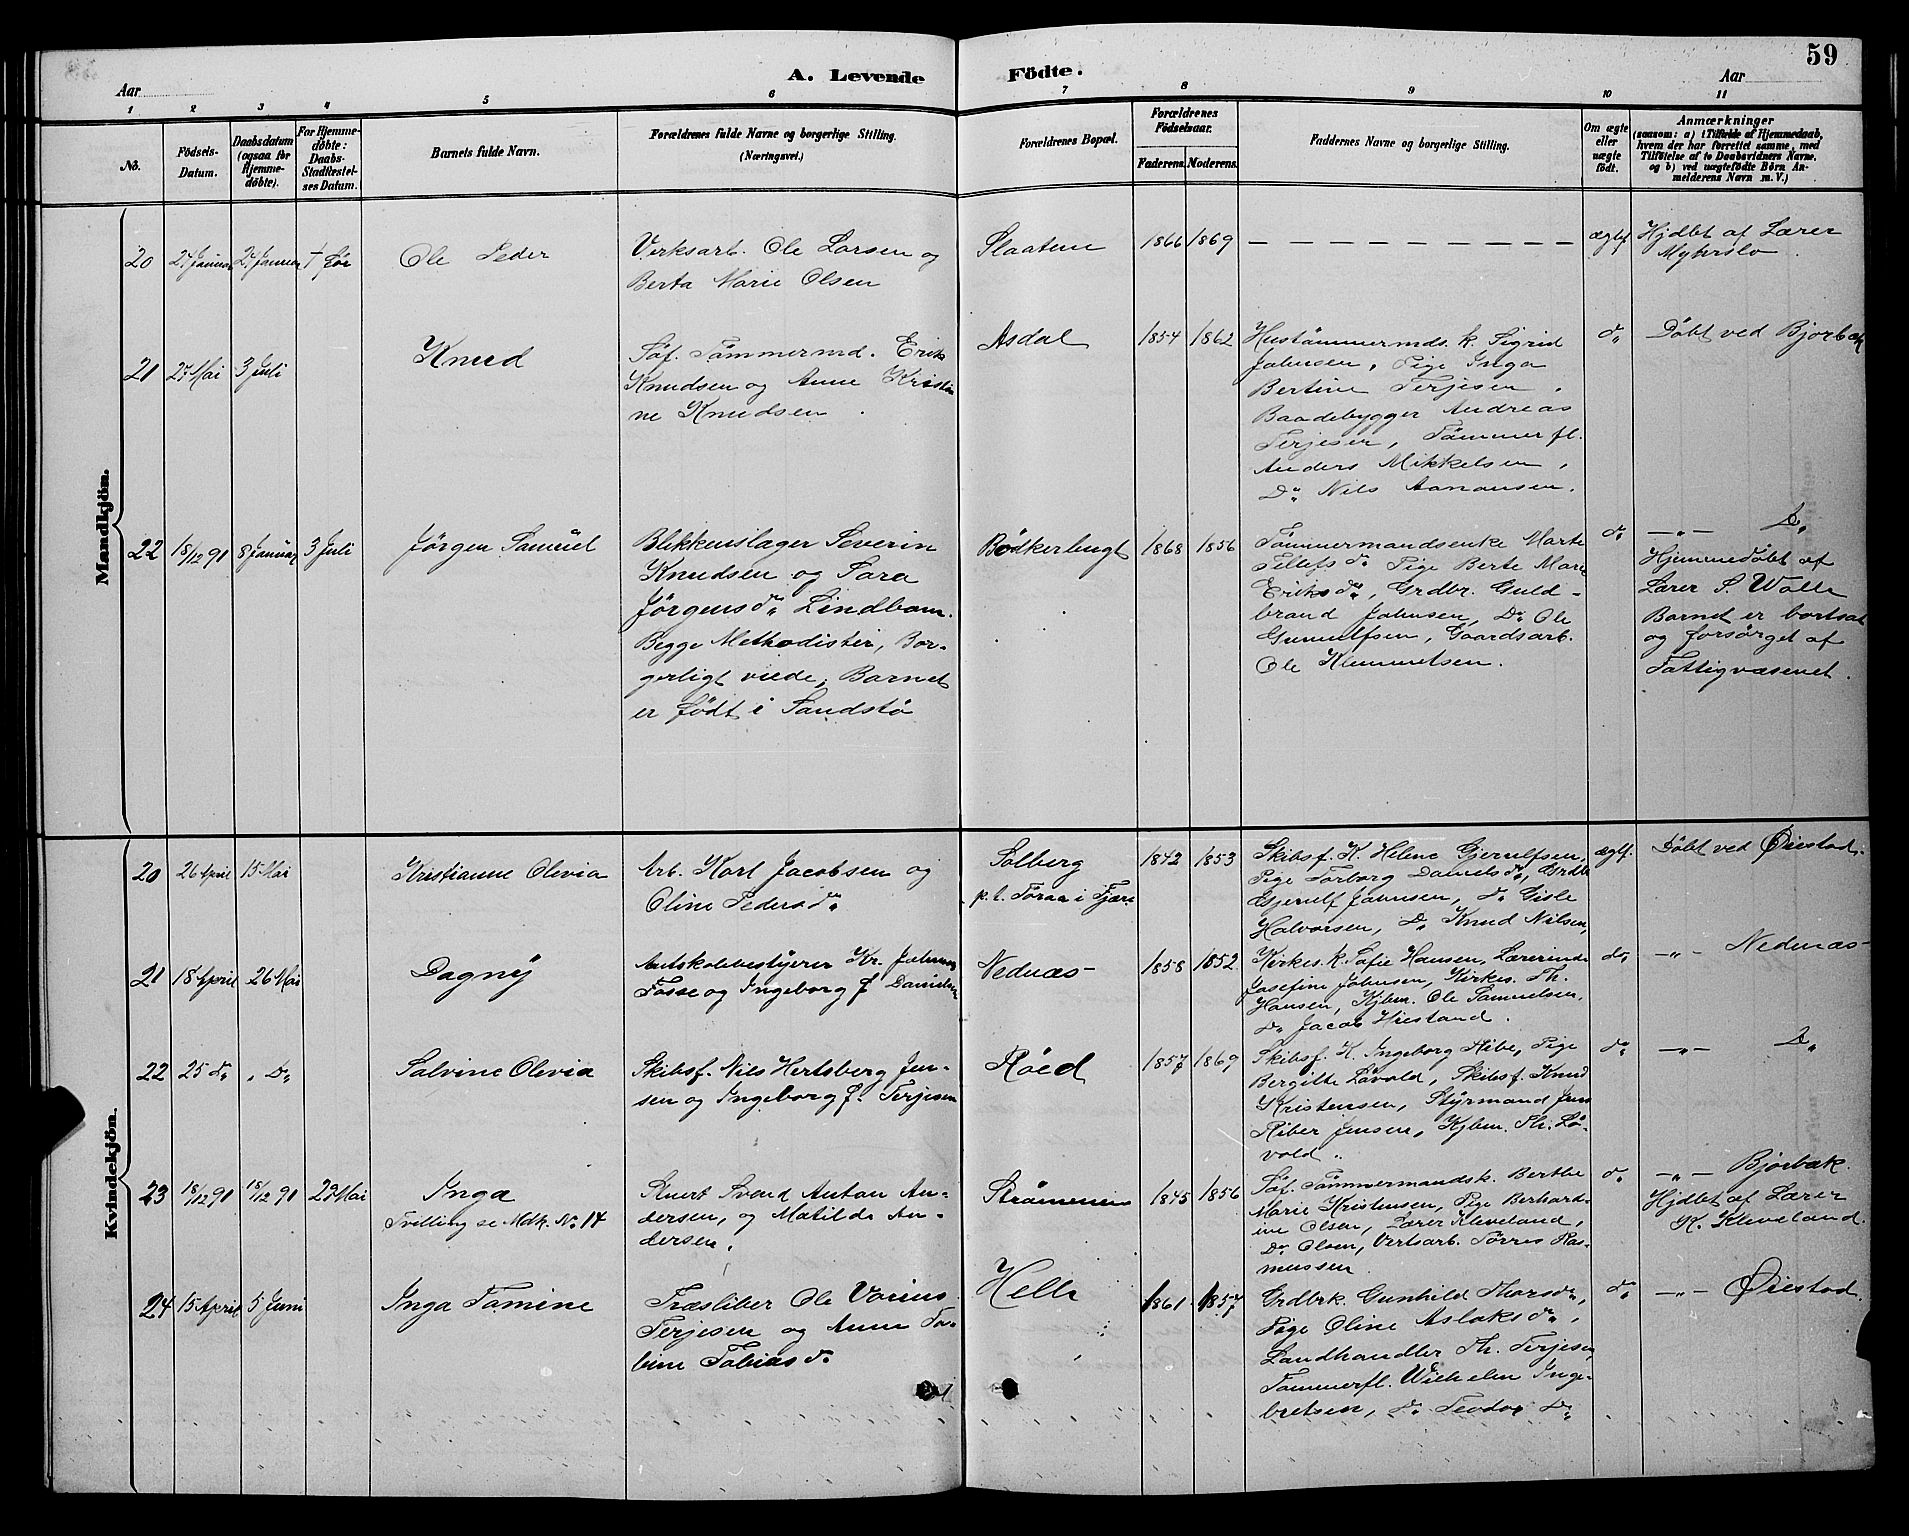 59
A. Levende Födte.
Aar
Aar
1 2 3 4 5 6 7 8 9 10 11
No.
Födsels-
Datum.
Daabsdatum
(ogsaa for
Hjemme-
døbte).
For Hjemme-
døbte:
Daabs-
Stadfæstel-
ses Datum.
Barnets fulde Navn.
Forældrenes fulde Navne og borgerlige Stilling.
(Næringsvei.)
Forældrenes Bopæl.
Forældrenes
Födselsaar.
Faderens. Moderens.
Faddernes Navne og borgerlige Stilling.
Om ægte
eller
uægte
født.
Anmærkninger
(saasom: a) i Tilfælde af Hjemmedaab,
hvem der har forrettet samme, med
Tilføielse af to Daabsvidners Navne,
og b) ved uægtefødte Børn An-
melderens Navn m. V.)
Mandkjön.
20 27 Januar 27 Januar † før
Ole Peder
Verksarb. Ole Larsen og
Berta Marie Olsen
Slaatene
1866 1869
— — — — — — — — — —
ægtef
Hjdbt af Lærer
21 27 Mai 3 Juli
Knud
Søf. Tømmermd. Erik
Knudsen og Anne Kristi-
ne Knudsen
Asdal
1854 1862
Hustømmermds. k. Sigrid
Johnsen, Pige Inga
Bertine Terjesen,
Baadebygger Andreas
Terjesen, Tømmerfl.
Anders Mikkelsen,
Do Nils Aanonsen.
do
Døbt ved Bjorbæk
22 18/12 91 8 Januar 3 Juli
Jørgen Samuel
Blikkenslager Severin
Knudsen og Sara
Jørgensdr. Lindbom.
Begge Methodister, Bor-
gerligt viede, Barnet
er født i Sandstø
Bødkerbugt
1868 1856
Tømmermandsenke Marte
Tellefsdr. Pige Berte Marie
Eriksdr., Grdbr. Guld-
brand Johnsen, Do Ole
Gunnulfsen, Gaardsarb.
Ole Klemmetsen.
do
—„— Do
Hjemmedøbt af
Lærer S. Wolle
Barnet er bortsat
og forsørget af
Fattigvæsenet.
Kvindekjön.
20 26 April 15 Mai
Kristianne Olivia
Arb. Karl Jacobsen og
Oline Pedersdr.
Solberg
p. t. Foraa i Fjære
1842 1853
Skibsf. K. Helene Gjerulfsen,
Pige Torborg Danielsdr., Grdbr.
Gjerulf Johnsen, do Gisle
Halvorsen, Do Knud Nilsen,
ægtf.
Døbt ved Øiestad.
21 18 April 26 Mai
Dagny
Amtskolebestyrer Kr. Johnsen
Fosse og Ingeborg f. Danielsen
Nedenæs
1858 1852
Kirkes. k. Sofie Hansen, Lærerinde
Josefine Johnsen, Kirkes. Th.
Hansen, Kjbm. Ole Samuelsen,
Do Jacob Hiestand.
do
—„— Nedenæs
22 25 do „ Do
Salvine Olivia
Skibsf. Nils Hertsberg Jen-
sen og Ingeborg f. Terjesen
Røed
1857 1869
Skibsf. K. Ingeborg Ribe, Pige
Bergitte Løvold, Skibsf. Knud
Kristensen, Styrmand Jens
Riber Jensen, Kjbm. Th. Lø-
vold.
do
—„— Do
23 18/12 91 18/12 91 29 Mai
Inga
Tvilling se Mdk. No 14
Snert Svend Anton An-
dersen, og Matilde An-
dersen.
Strømmen
1845 1856
Søf. Tømmermandsk. Berthe
Marie Kristensen, Pige Berhard-
ine Olsen, Lærer Kleveland,
Do Olsen, Verksarb. Tørres Ras-
mussen
do
—„— Bjorbæk.
Hjdbt af Lærer
K. Kleveland.
24 15 April 5 Juni
Inga Tomine
Træsliber Ole Vorius
Terjesen og Anne To-
bine Tobiasdr.
Helle
1861 1857
Grdbrk. Gunhild Thorsdr.,
Pige Oline Aslaksdr.,
Landhandler Th. Terjesen,
Tømmerfl. Wilhelm Inge-
bretsen, do Teodor Do
do
—„— Øiestad.